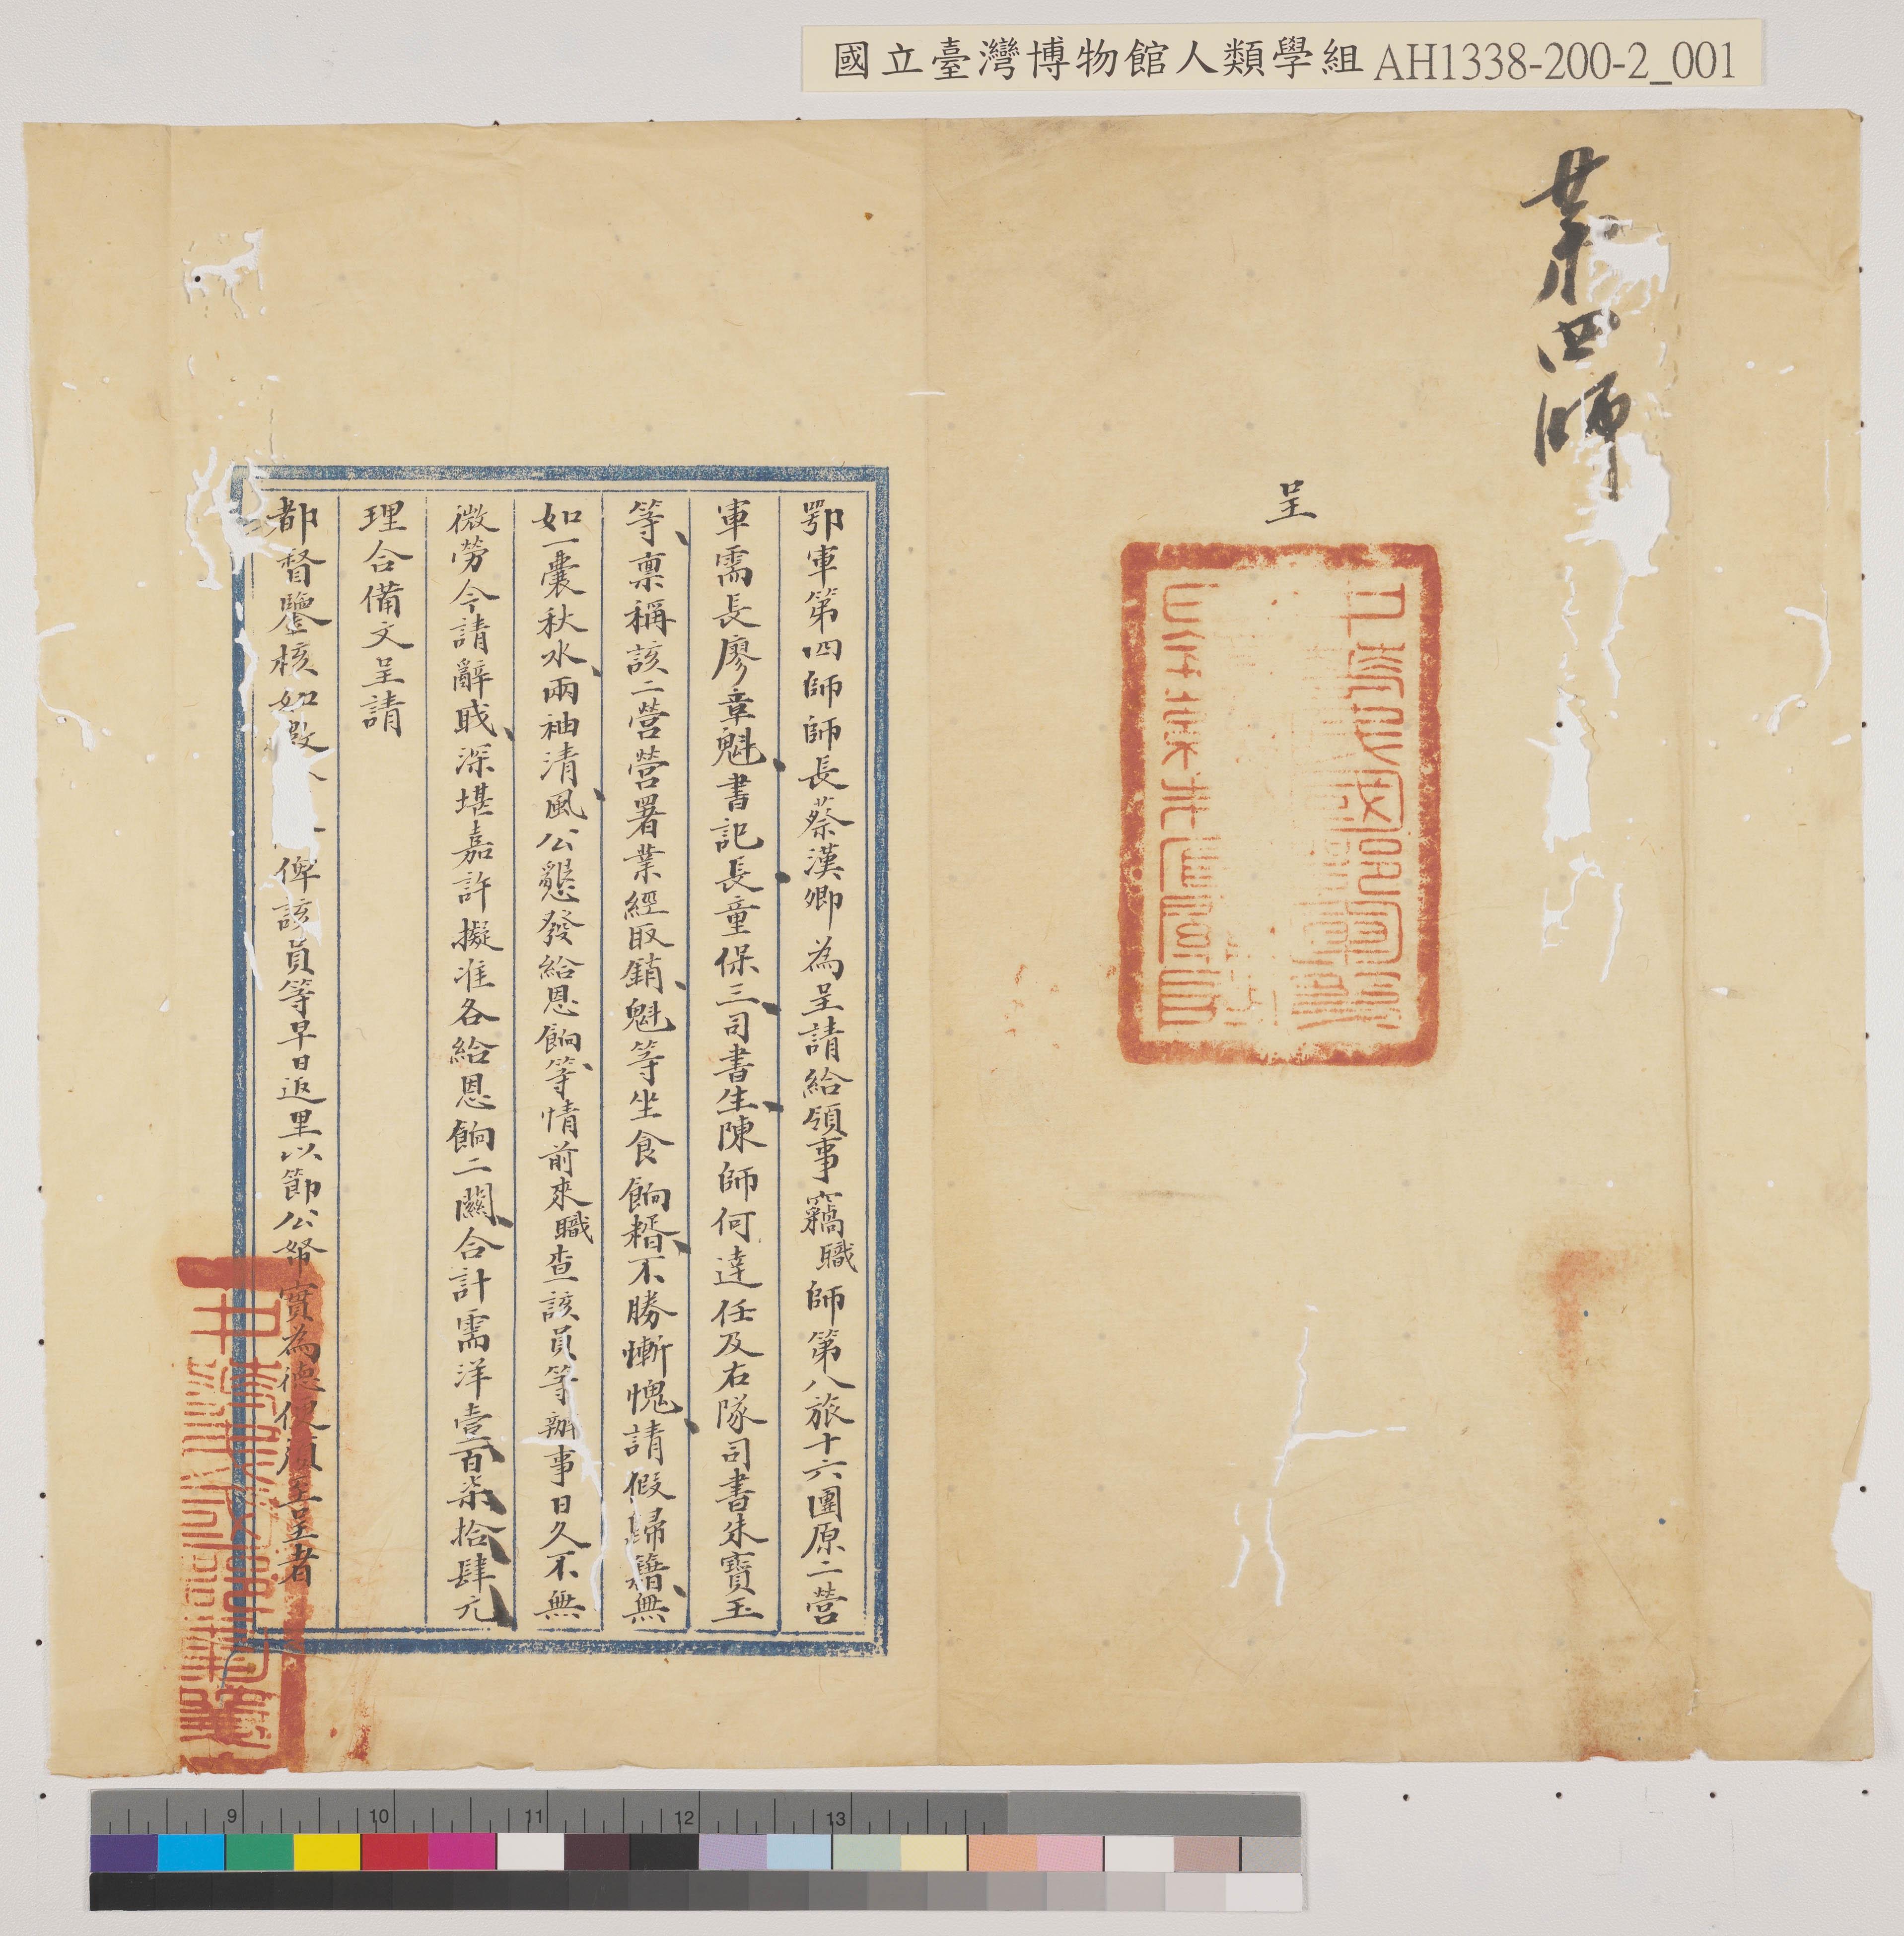 國立臺灣博物館人類學組 AH1338-200-2_001
第四師
呈
鄂軍第四師師長蔡漢卿為呈請給領事竊職師第八旅十六團原二營
軍需長廖章魁書記長童保三司書生陳師何達任及右隊司書朱寶玉
等稟稱該二營營署業經取銷魁等坐食餉糈不勝慚愧請假歸籍無
如一囊秋水兩袖清風公懇發給恩餉等情前來職查該員等辦事日久不無
微勞今請辭職深堪嘉許擬准各給恩餉二關合計需洋壹百柒拾肆元
理合備文呈請
都督鑒核如 俾該員等早日返里以節公帑實為德便須至呈者
9 10 11 12 13